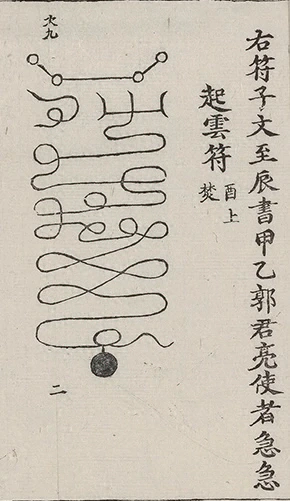 右符子文至辰書甲乙郭君亮使者急急
起雲符
酉上
焚
火九
二